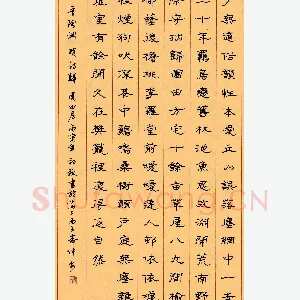 少無適俗韻性本愛丘山誤落塵網中一去
三十年羈鳥戀舊林池魚思故淵開荒南野
際守拙歸園田方宅十餘畝草屋八九間榆
柳蔭後檐桃李羅堂前曖曖遠人村依依墟
里煙狗吠深巷中雞鳴桑樹顛戶庭無塵雜
虛室有餘閑久在樊籠裡復得返自然
晉陶淵明詩歸園田居